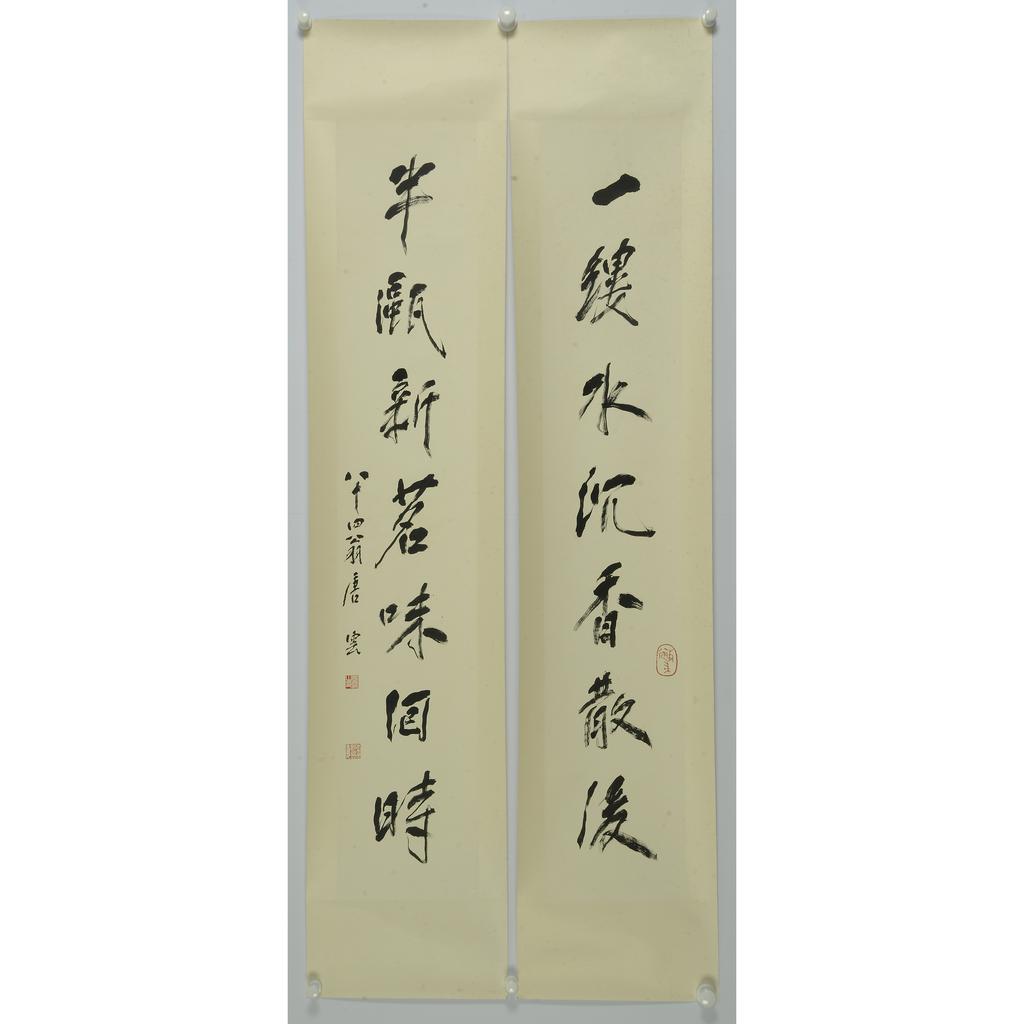 一縷水沉香散後
半甌新茗味回時
八十四翁唐雲